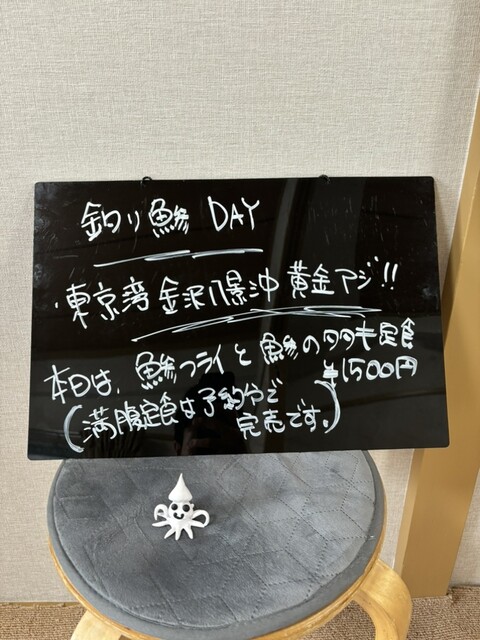 釣り鯵 DAY
・東京湾 金沢八景沖 黄金アジ!!
本日は、鯵フライと鯵のタタキ定食
¥1500円
(満腹定食は予約分で
完売です。)